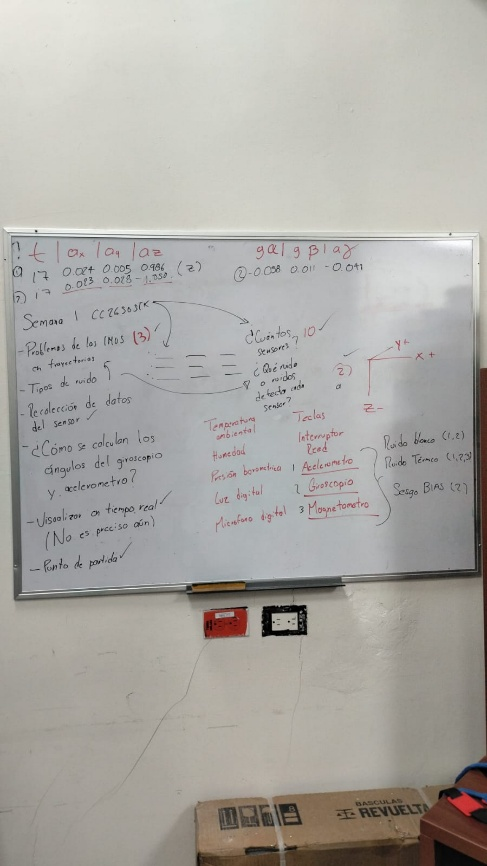 t | ax | ay | az
gα | gβ | aγ
17 0.024 0.005 0.986 (z)
② -0.098 0.011 -0.041
17 0.023 0.028
Semana 1 CC2650STK
- Problemas de los IMUS (3)
en trayectorias
- Tipos de ruido
- Recolección de datos
del sensor ✓
- ¿Cómo se calculan los
ángulos del giroscopio
y acelerometro?
- Visualizar en tiempo real ✓
(No es preciso aún)
- Punto de partida ✓
¿Cuántos
sensores? 10 ✓
¿Qué ruido
o ruidos
detecta cada
sensor?
2)
Y+
X+
Z-
Temperatura
ambiental
Humedad
Presión barometrica
Luz digital
Microfono digital
Teclas
Interruptor
Reed
1 Acelerometro
2 Giroscopio
3 Magnetometro
Ruido blanco (1,2)
Ruido Térmico (1,2,3)
Sesgo BIAS (2)
BASCULAS
REVUELTA